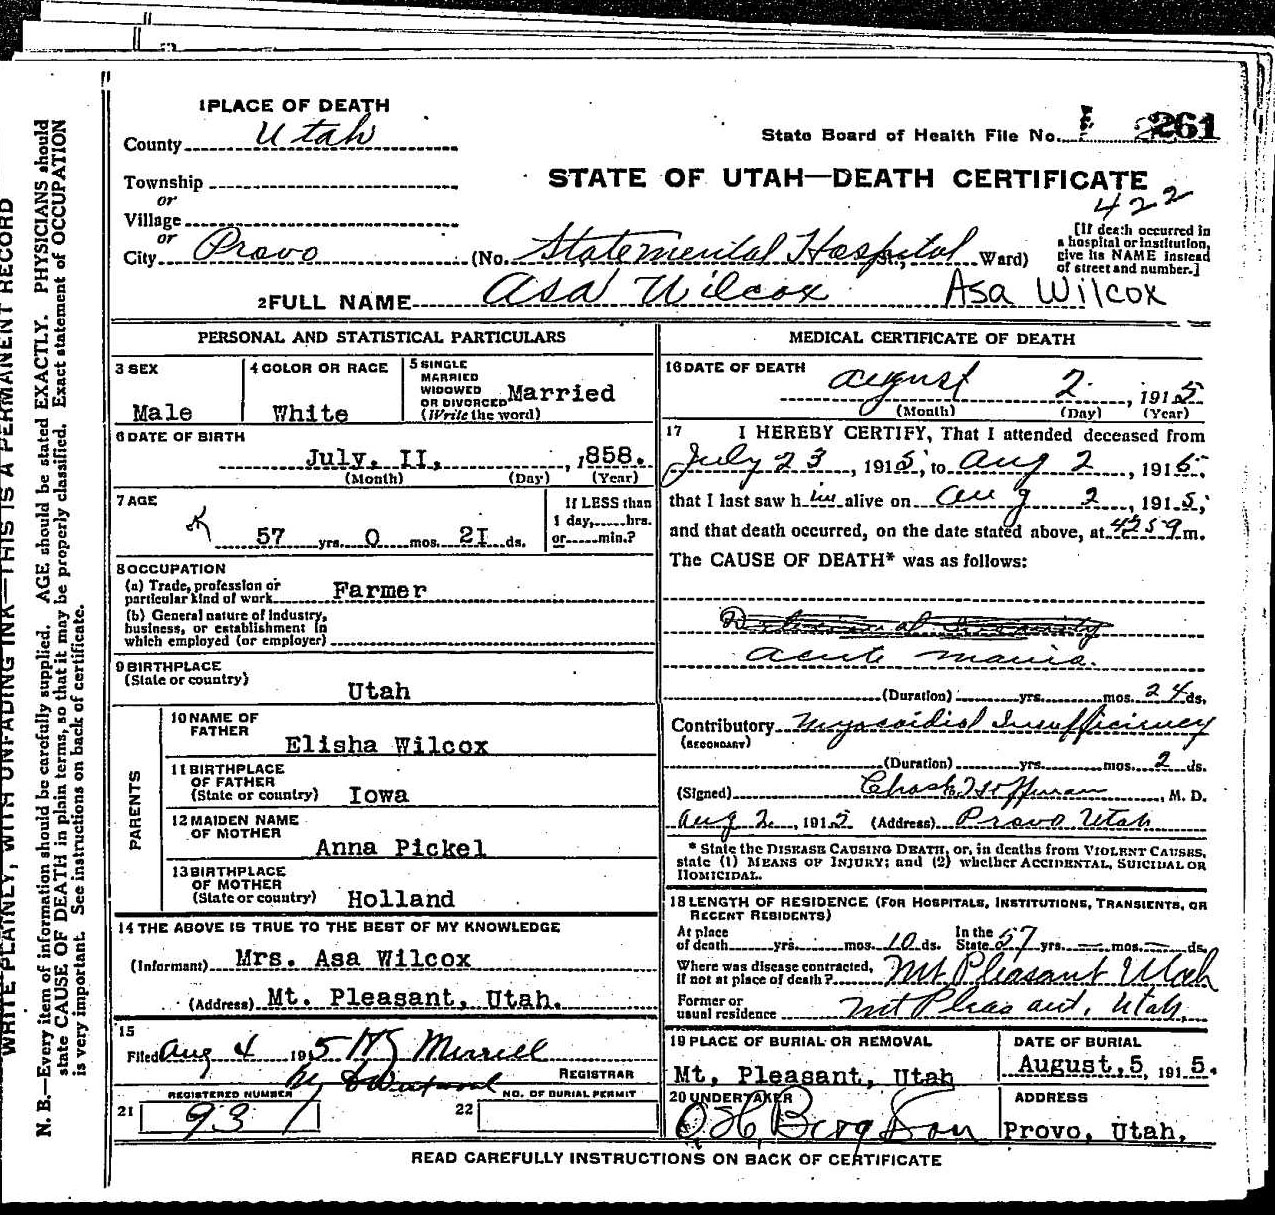 1 PLACE OF DEATH
County Utah
State Board of Health File No. 261
Township
or
STATE OF UTAH—DEATH CERTIFICATE
422
Village
or
City Provo (No. State mental Hospital Ward)
[If death occurred in
a hospital or institution,
give its NAME instead
of street and number.]
2 FULL NAME Asa Wilcox Asa Wilcox
PERSONAL AND STATISTICAL PARTICULARS
3 SEX
Male
4 COLOR OR RACE
White
5 SINGLE
MARRIED
WIDOWED
OR DIVORCED
(Write the word)
Married
6 DATE OF BIRTH
July. II, , 1858.
(Month) (Day) (Year)
7 AGE
57 yrs. 0 mos. 2I ds.
If LESS than
1 day, hrs.
or min.?
8 OCCUPATION
(a) Trade, profession or
particular kind of work Farmer
(b) General nature of industry,
business, or establishment in
which employed (or employer)
9 BIRTHPLACE
(State or country)
Utah
PARENTS
10 NAME OF
FATHER
Elisha Wilcox
11 BIRTHPLACE
OF FATHER
(State or country) Iowa
12 MAIDEN NAME
OF MOTHER
Anna Pickel
13 BIRTHPLACE
OF MOTHER
(State or country) Holland
14 THE ABOVE IS TRUE TO THE BEST OF MY KNOWLEDGE
(Informant) Mrs. Asa Wilcox
(Address) Mt. Pleasant, Utah.
15
Filed Aug 4 1915 Merrill
by
REGISTRAR
REGISTERED NUMBER
21 93
NO. OF BURIAL PERMIT
22
MEDICAL CERTIFICATE OF DEATH
16 DATE OF DEATH
August 2 , 1915
(Month) (Day) (Year)
17 I HEREBY CERTIFY, That I attended deceased from
July 23 , 1915, to Aug 2 , 1915,
that I last saw h im alive on Aug 2 , 1915,
and that death occurred, on the date stated above, at m.
The CAUSE OF DEATH* was as follows:
acute mania.
(Duration) yrs. mos. 24 ds.
Contributory Myocardial Insufficiency
(SECONDARY)
(Duration) yrs. mos. 2 ds.
(Signed) Hoffman , M. D.
Aug 2 , 1915 (Address) Provo Utah
* State the DISEASE CAUSING DEATH, or, in deaths from VIOLENT CAUSES,
state (1) MEANS OF INJURY; and (2) whether ACCIDENTAL, SUICIDAL OR
HOMICIDAL.
18 LENGTH OF RESIDENCE (FOR HOSPITALS, INSTITUTIONS, TRANSIENTS, OR
RECENT RESIDENTS)
At place
of death yrs. mos. 10 ds.
In the
State 57 yrs. — mos. — ds.
Where was disease contracted,
if not at place of death? Mt Pleasant Utah
Former or
usual residence Mt Pleasant, Utah,
19 PLACE OF BURIAL OR REMOVAL
Mt, Pleasant, Utah
DATE OF BURIAL
August,5, 1915.
20 UNDERTAKER
O. H. Berg & Son
ADDRESS
Provo, Utah,
READ CAREFULLY INSTRUCTIONS ON BACK OF CERTIFICATE
WRITE PLAINLY, WITH UNFADING INK—THIS IS A PERMANENT RECORD
N. B.—Every item of information should be carefully supplied. AGE should be stated EXACTLY. PHYSICIANS should
state CAUSE OF DEATH in plain terms, so that it may be properly classified. Exact statement of OCCUPATION
is very important. See instructions on back of certificate.